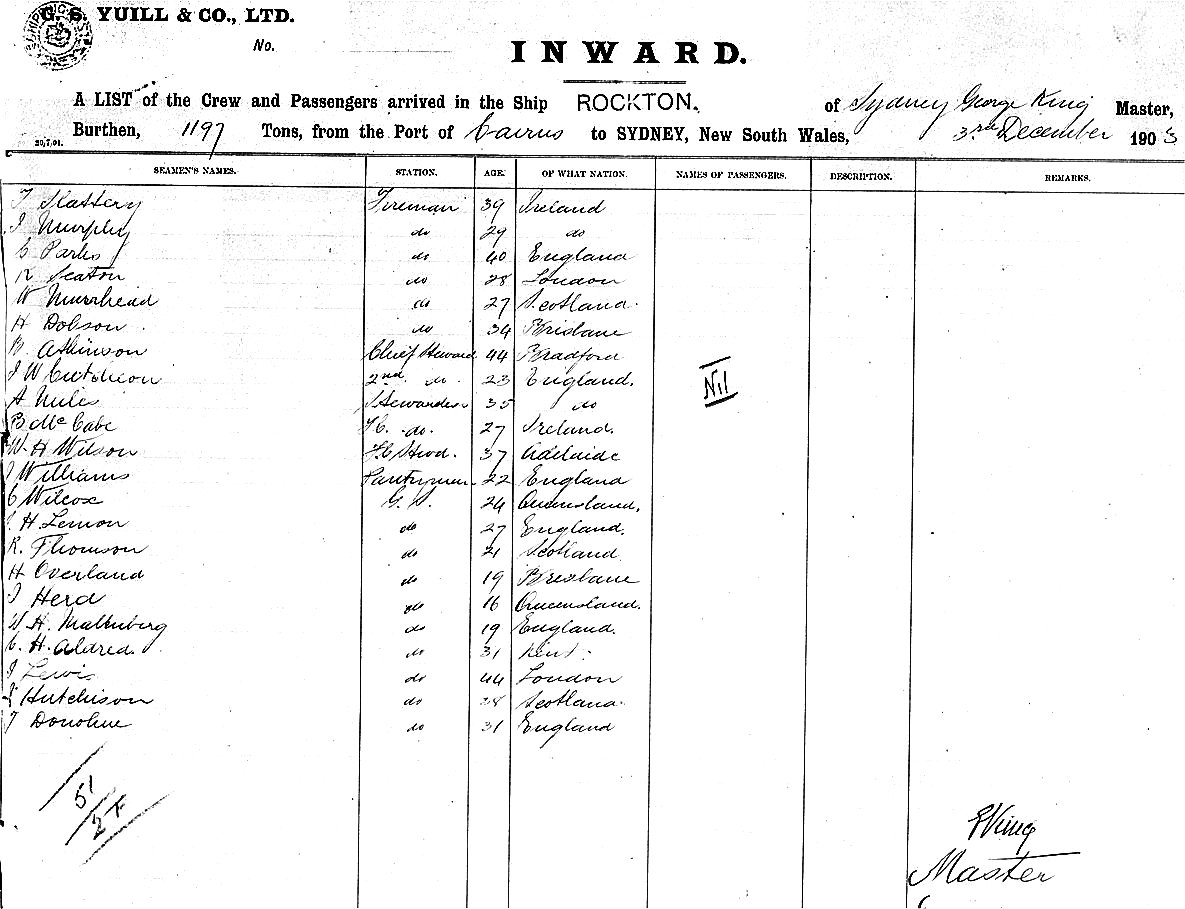 G. S. YUILL & CO., LTD.
No.
INWARD.
A LIST of the Crew and Passengers arrived in the Ship ROCKTON. of Sydney George King Master,
Burthen, 1197 Tons, from the Port of Cairns to SYDNEY, New South Wales, 3rd December 1903
20,7,01.
SEAMEN'S NAMES. STATION. AGE. OF WHAT NATION. NAMES OF PASSENGERS. DESCRIPTION. REMARKS.
T Slattery Fireman 39 Ireland
J Murphy do 29 do
C Parks do 40 England
R Seaton do 28 London
W Muirhead do 27 Scotland.
H Dobson. do 34 Brisbane
B. Atkinson Chief Steward 44 Bradford
J W Cutcheon 2nd do. 23 England.
A Miles Stewardess 35 do
Nil
B McCabe F.C. do. 27 Ireland.
W. H Wilson F.C Stwd. 37 Adelaide
J Williams Pantryman 22 England
C Wilcox G. S. 24 Queensland.
J. H Lemon do 27 England.
R. Thomson do 21 Scotland
H Overland do 19 Brisbane
J Herd do 16 Queensland.
W. H. Maltenberg do 19 England.
C. H. Aldred. do 31 Kent.
J Lewis do 44 London
Hutchison do 38 Scotland.
T Donohue do 31 England
51
24
King
Master